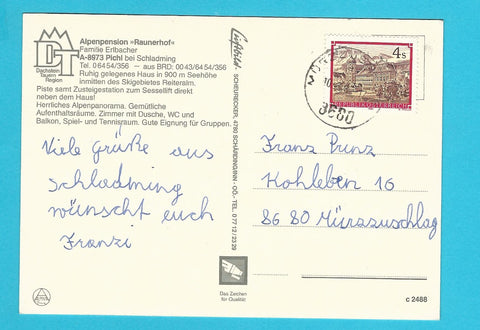 Alpenpension »Raunerhof«
Familie Erlbacher
A-8973 Pichl bei Schladming
Tel. 0 64 54/356 - aus BRD: 00 43/64 54/356
Ruhig gelegenes Haus in 900 m Seehöhe
inmitten des Skigebietes Reiteralm.
Piste samt Zusteigstation zum Sessellift direkt
neben dem Haus!
Herrliches Alpenpanorama. Gemütliche
Aufenthaltsräume. Zimmer mit Dusche, WC und
Balkon, Spiel- und Tennisraum. Gute Eignung für Gruppen.
DT
Dachstein
Tauern
Region
Viele Grüße aus
Schladming
wünscht euch
Franzi
Luftbild - SCHEURECKER, 4780 SCHÄRDING/INN - OÖ - TEL. 0 77 12/23 29
4s
REPUBLIK ÖSTERREICH
8680
Franz Prinz
Kohleben 16
8680 Mürzzuschlag
Das Zeichen
für Qualität
c 2488